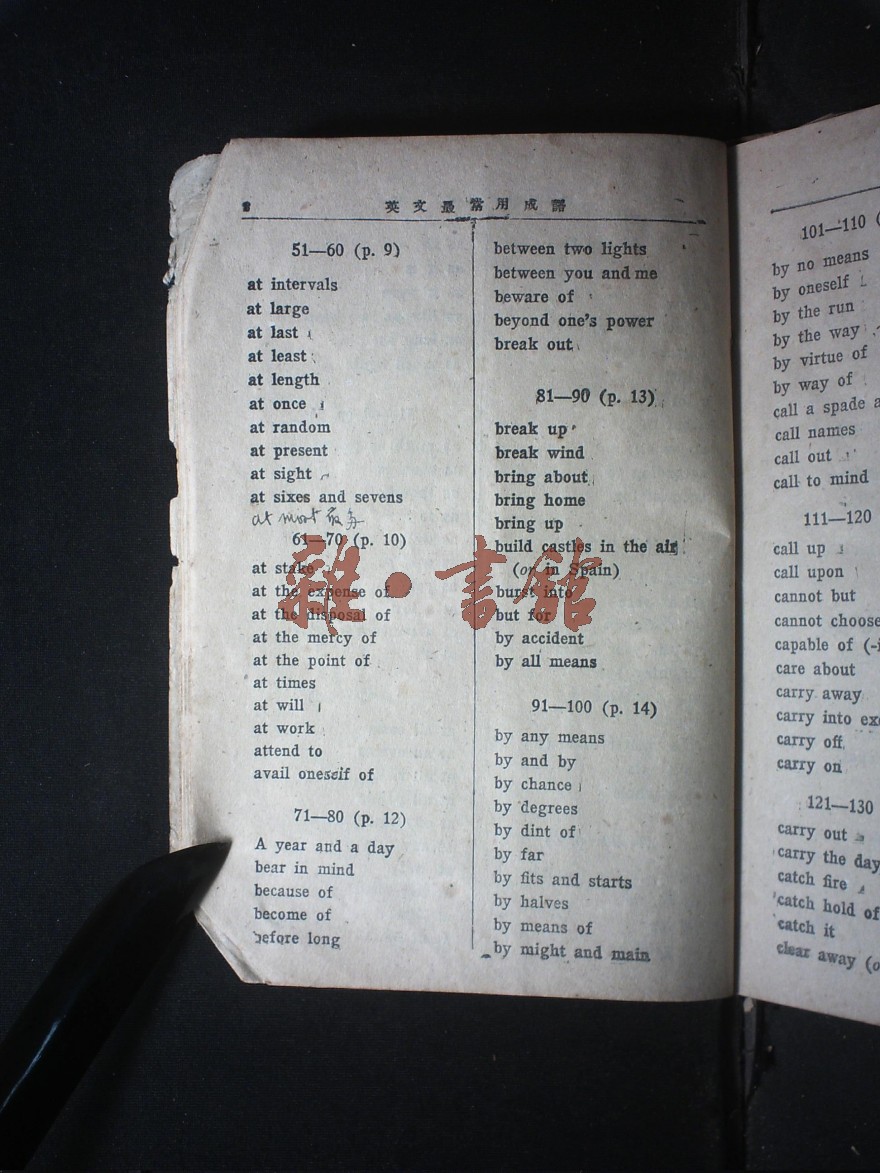 英文最常用成語
51—60 (p. 9)
at intervals
at large
at last
at least
at length
at once
at random
at present
at sight
at sixes and sevens
at most 最多
61—70 (p. 10)
at stake
at the expense of
at the disposal of
at the mercy of
at the point of
at times
at will
at work
attend to
avail oneself of
71—80 (p. 12)
A year and a day
bear in mind
because of
become of
before long
between two lights
between you and me
beware of
beyond one's power
break out
81—90 (p. 13)
break up
break wind
bring about
bring home
bring up
build castles in the air
(or in Spain)
burst into
but for
by accident
by all means
91—100 (p. 14)
by any means
by and by
by chance
by degrees
by dint of
by far
by fits and starts
by halves
by means of
by might and main
101—110 (
by no means
by oneself
by the run
by the way
by virtue of
by way of
call a spade a
call names
call out
call to mind
111—120
call up
call upon
cannot but
cannot choose
capable of (-i
care about
carry away
carry into ex
carry off
carry on
121—130
carry out
carry the day
catch fire
catch hold of
catch it
clear away (o
雜·書館